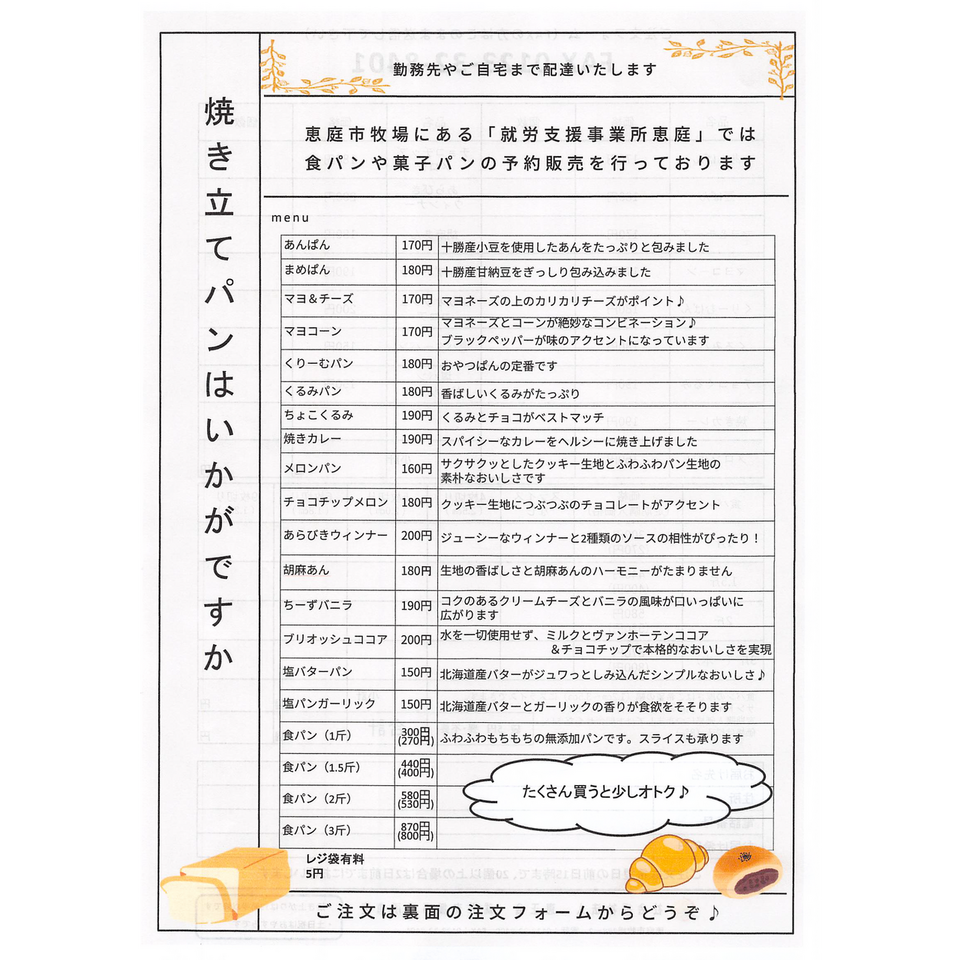 勤務先やご自宅まで配達いたします
焼き立てパンはいかがですか
恵庭市牧場にある「就労支援事業所恵庭」では
食パンや菓子パンの予約販売を行っております
menu
あんぱん 170円 十勝産小豆を使用したあんをたっぷりと包みました
まめぱん 180円 十勝産甘納豆をぎっしり包み込みました
マヨ&チーズ 170円 マヨネーズの上のカリカリチーズがポイント♪
マヨコーン 170円 マヨネーズとコーンが絶妙なコンビネーション♪
ブラックペッパーが味のアクセントになっています
くりーむパン 180円 おやつぱんの定番です
くるみパン 180円 香ばしいくるみがたっぷり
ちょこくるみ 190円 くるみとチョコがベストマッチ
焼きカレー 190円 スパイシーなカレーをヘルシーに焼き上げました
メロンパン 160円 サクサクッとしたクッキー生地とふわふわパン生地の
素朴なおいしさです
チョコチップメロン 180円 クッキー生地につぶつぶのチョコレートがアクセント
あらびきウィンナー 200円 ジューシーなウィンナーと2種類のソースの相性がぴったり!
胡麻あん 180円 生地の香ばしさと胡麻あんのハーモニーがたまりません
ちーずバニラ 190円 コクのあるクリームチーズとバニラの風味が口いっぱいに
広がります
ブリオッシュココア 200円 水を一切使用せず、ミルクとヴァンホーテンココア
&チョコチップで本格的なおいしさを実現
塩バターパン 150円 北海道産バターがジュワっとしみ込んだシンプルなおいしさ♪
塩パンガーリック 150円 北海道産バターとガーリックの香りが食欲をそそります
食パン(1斤) 300円 ふわふわもちもちの無添加パンです。スライスも承ります
(270円)
食パン(1.5斤) 440円
(400円)
食パン(2斤) 580円
(530円)
食パン(3斤) 870円
(800円)
たくさん買うと少しオトク♪
レジ袋有料
5円
ご注文は裏面の注文フォームからどうぞ♪